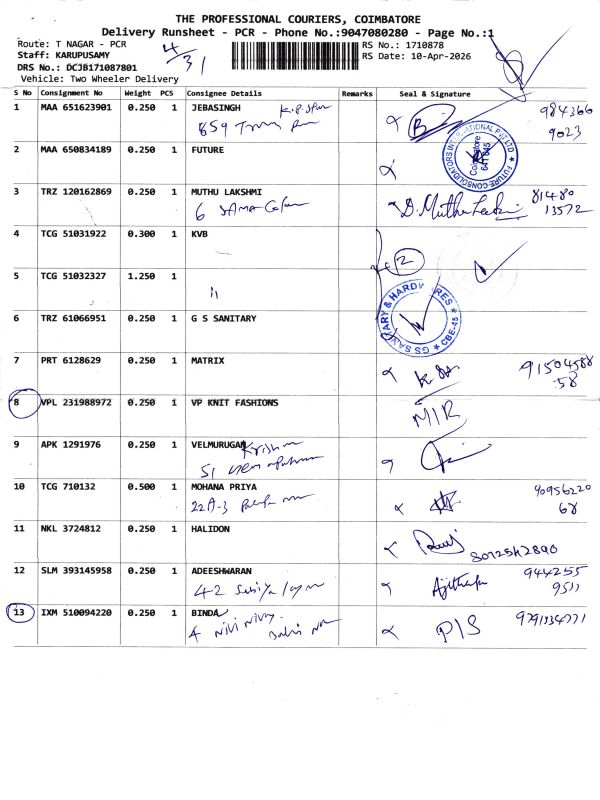 THE PROFESSIONAL COURIERS, COIMBATORE
Delivery Runsheet - PCR - Phone No.:9047080280 - Page No.:1
Route: T NAGAR - PCR
Staff: KARUPUSAMY
DRS No.: DCJB171087801
Vehicle: Two Wheeler Delivery
4/31
RS No.: 1710878
RS Date: 10-Apr-2026
S No Consignment No Weight PCS Consignee Details Remarks Seal & Signature
1 MAA 651623901 0.250 1 JEBASINGH
859
984366
9023
2 MAA 650834189 0.250 1 FUTURE
FUTURE CONSOLIDATORS INTERNATIONAL PVT LTD
Coimbatore
641 045
3 TRZ 120162869 0.250 1 MUTHU LAKSHMI
6
D. Muthu Lakshmi
81480
13572
4 TCG 51031922 0.300 1 KVB
2
5 TCG 51032327 1.250 1
11
6 TRZ 61066951 0.250 1 G S SANITARY
GS SANITARY & HARDWARES
CBE-45
7 PRT 6128629 0.250 1 MATRIX
91504588
58
8 VPL 231988972 0.250 1 VP KNIT FASHIONS
MIR
9 APK 1291976 0.250 1 VELMURUGAN
51
10 TCG 710132 0.500 1 MOHANA PRIYA
22A-3
90956220
68
11 NKL 3724812 0.250 1 HALIDON
8072542890
12 SLM 393145958 0.250 1 ADEESHWARAN
42
944255
9511
13 IXM 510094220 0.250 1 BINDA
4
P/S
9791334771